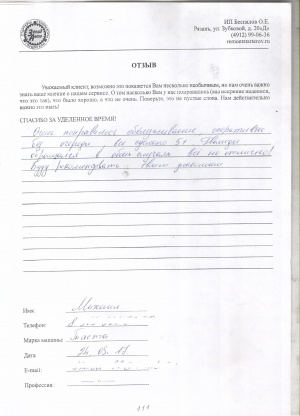 ИП Беспалов О.Е.
Рязань, ул. Зубковой, д. 20«Д»
(4912) 99-06-36
ОТЗЫВ
Уважаемый клиент, возможно это покажется Вам несколько необычным, но нам очень важно
знать ваше мнение о нашем сервисе. О том насколько Вам у нас понравилось (мы искренне надеемся,
что это так), что было хорошо, а что не очень. Поверьте, это не пустые слова. Нам действительно
важно это знать!
СПАСИБО ЗА УДЕЛЕННОЕ ВРЕМЯ!
Очень понравилось обслуживание, оперативно
без очереди, все сделано 5+ Дважды
обращался в обоих случаях все на отлично!
Буду рекомендовать своим знакомым
Имя: Михаил
Телефон: 8
Марка машины:
Дата 24.03.17.
E-mail:
Профессия: